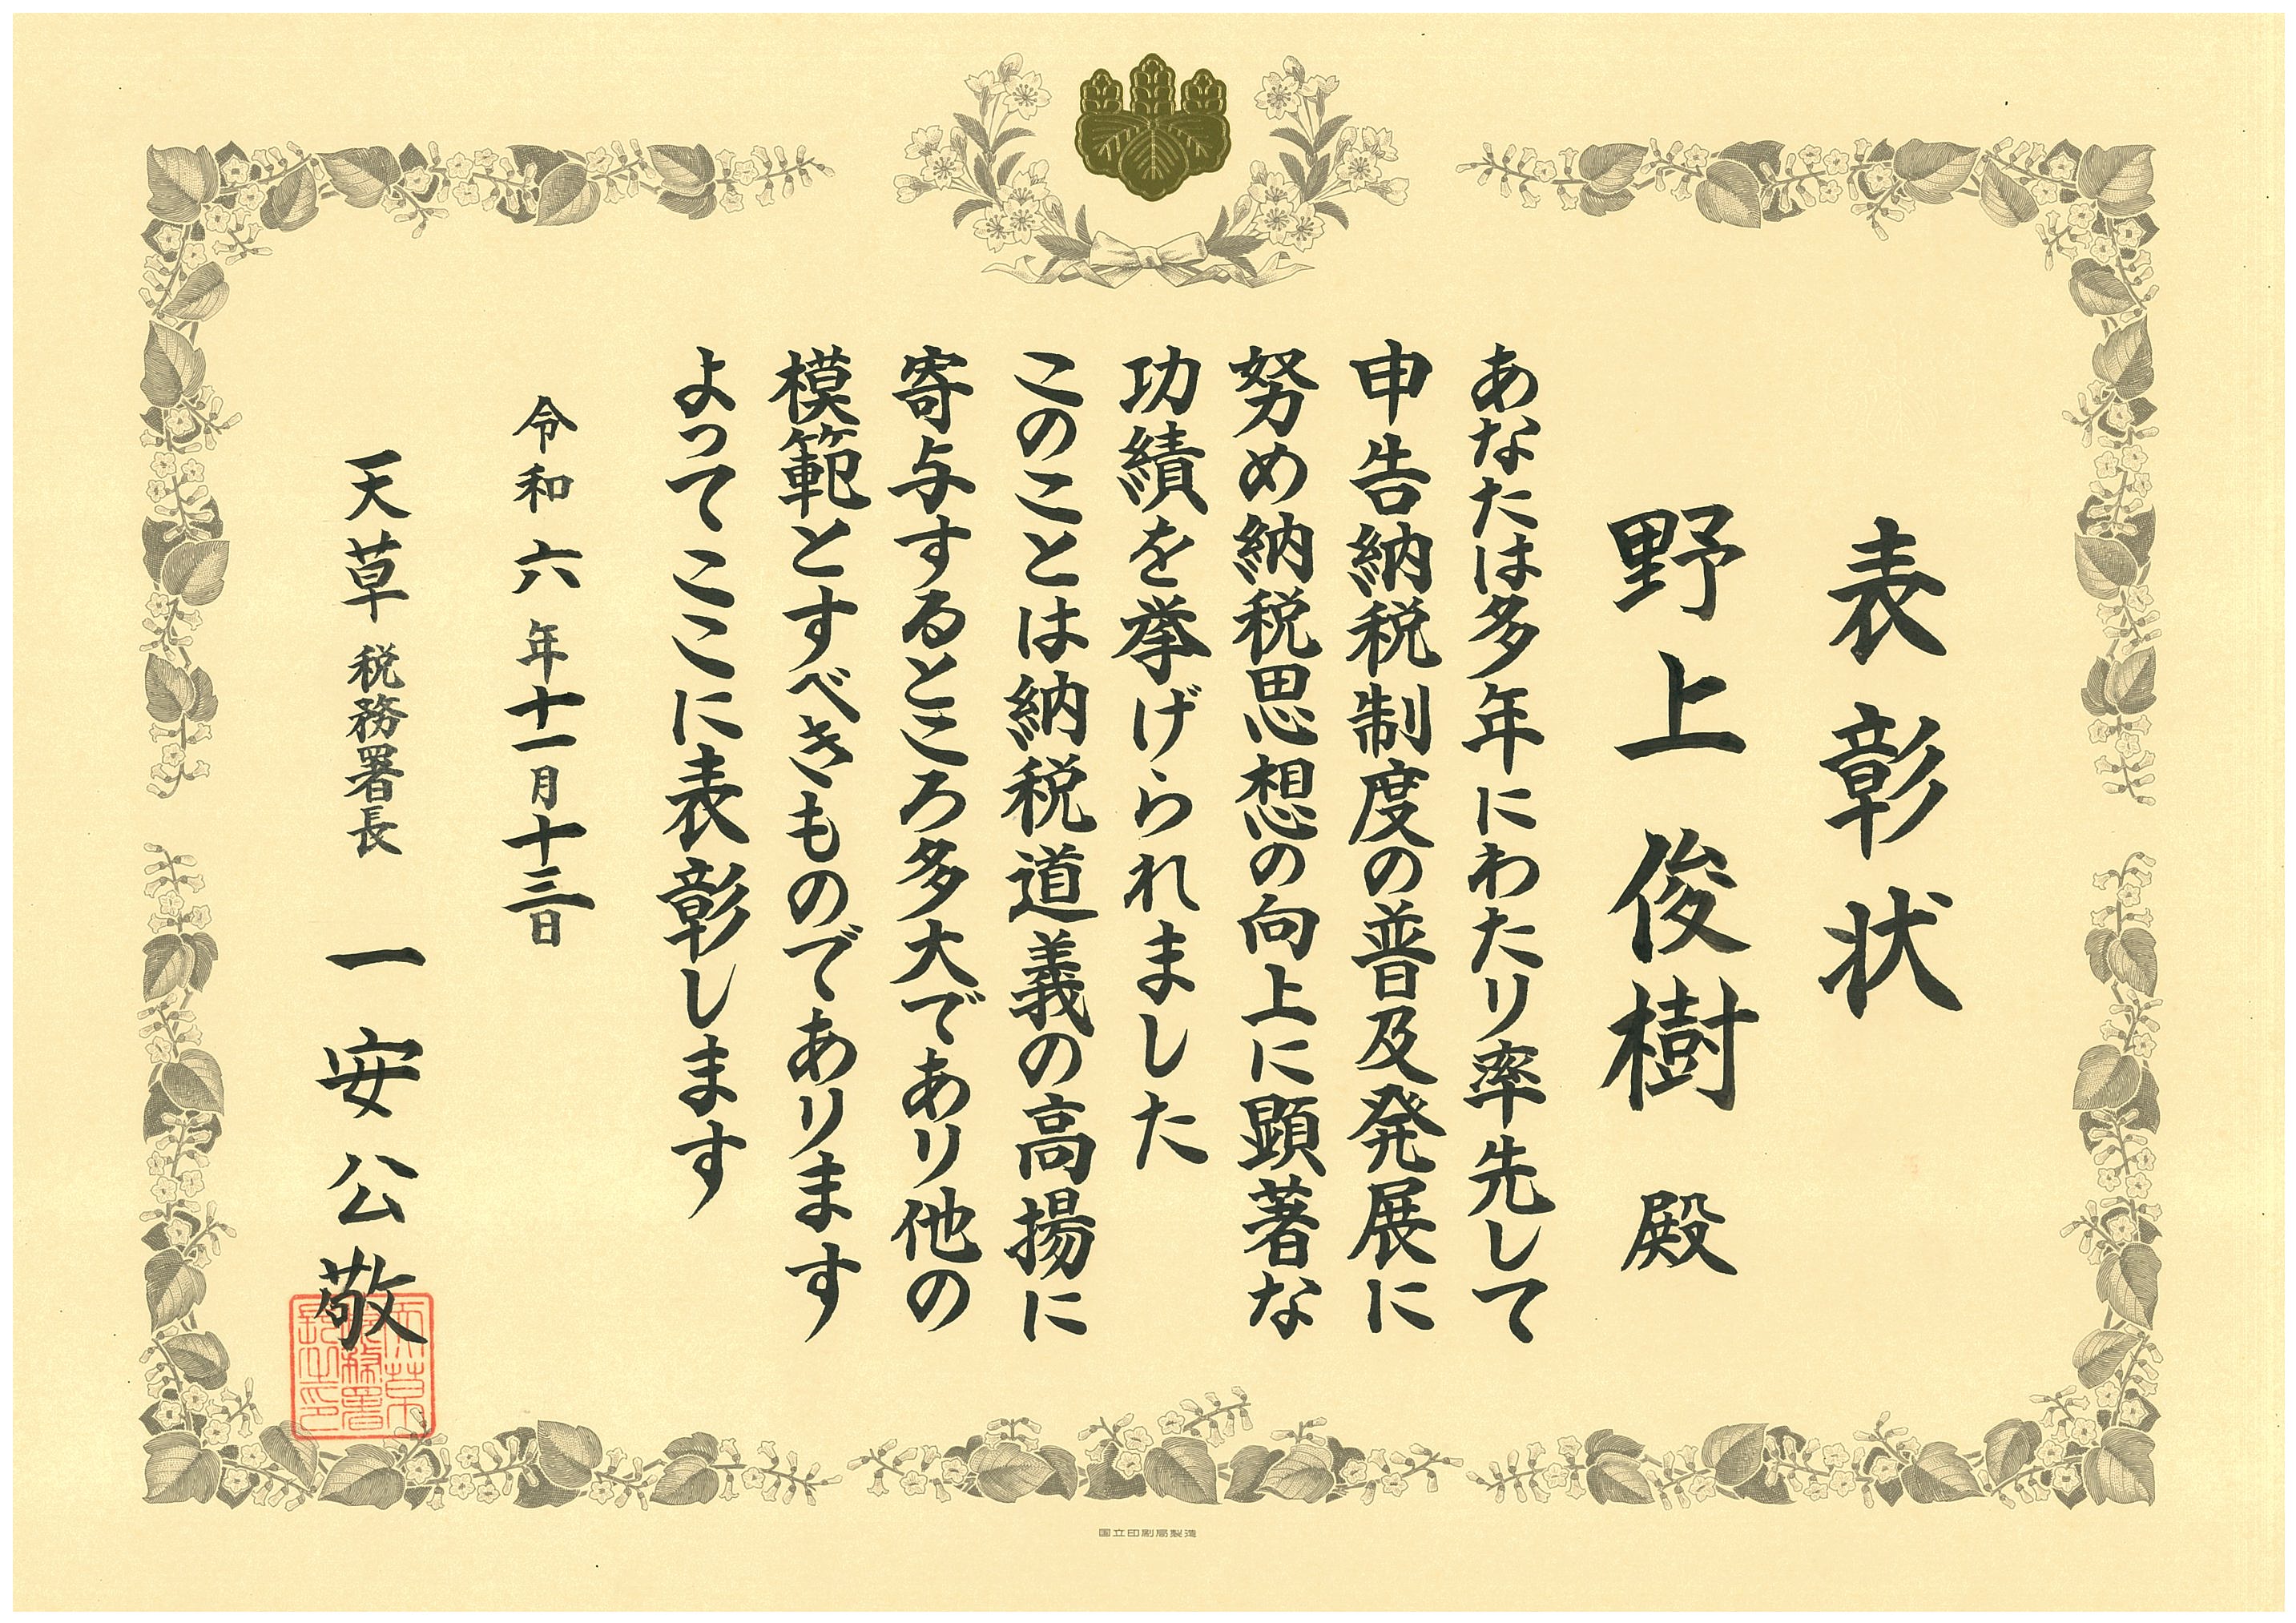 表彰状
野上俊樹 殿
あなたは多年にわたり率先して
申告納税制度の普及発展に
努め納税思想の向上に顕著な
功績を挙げられました
このことは納税道義の高揚に
寄与するところ多大であり他の
模範とすべきものであります
よってここに表彰します
令和六年十一月十三日
天草税務署長 一安公敬
天草税務署長之印
国立印刷局製造